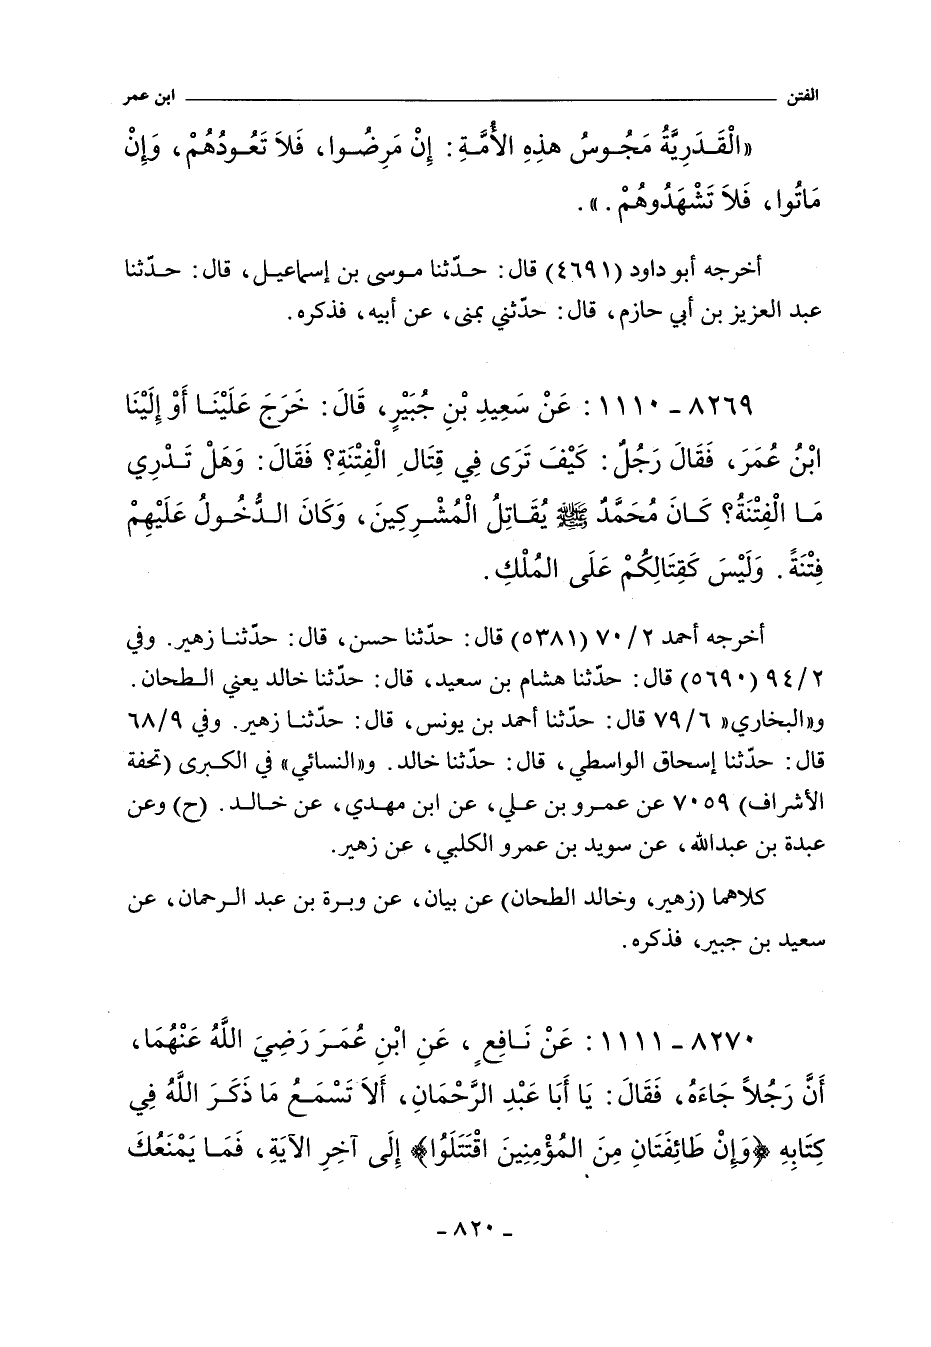 الفتن ــــــــــ ابن عمر
«الْقَـدَرِيَّةُ مَجُوسُ هذِهِ الأُمَّـةِ : إِنْ مَرِضُـوا، فَلاَ تَعُـودُهُمْ، وَإِنْ
مَاتُوا، فَلاَ تَشْهَدُوهُمْ . » .
أخرجه أبو داود (٤٦٩١) قال : حـدّثنا مـوسى بن إسماعيـل، قال : حـدّثنا
عبد العزيز بن أبي حازم، قال : حدّثني بمنى، عن أبيه، فذكره .
٨٢٦٩ ـ ١١١٠ : عَنْ سَعِيدِ بْنِ جُبَيْرٍ، قَالَ : خَرَجَ عَلَيْنَـا أَوْ إِلَيْنَا
ابْنُ عُمَرَ، فَقَالَ رَجُلٌ : كَيْفَ تَرَى فِي قِتَالِ الْفِتْنَةِ؟ فَقَالَ : وَهَلْ تَـدْرِي
مَـا الْفِتْنَةُ؟ كَـانَ مُحَمَّدٌ ﷺ يُقَـاتِلُ الْمُشْـرِكِينَ، وَكَانَ الـدُّخُـولُ عَلَيْهِمْ
فِتْنَةً . وَلَيْسَ كَقِتَالِكُمْ عَلَى المُلْكِ .
أخرجه أحمد ٧٠/٢ (٥٣٨١) قال : حدّثنا حسن، قال : حدّثنـا زهير . وفي
٩٤/٢ (٥٦٩٠) قال : حدّثنا هشام بن سعيد، قال : حدّثنا خالد يعني الـطحان .
و«البخاري» ٧٩/٦ قال : حدّثنا أحمد بن يونس، قال : حدّثنـا زهير . وفي ٦٨/٩
قال : حدّثنا إسحاق الواسطي، قال : حدّثنا خالد . و«النسائي» في الكـبرى (تحفة
الأشراف) ٧٠٥٩ عن عمـرو بن عـلي، عن ابن مهـدي، عن خـالـد . (ح) وعن
عبدة بن عبدالله، عن سويد بن عمرو الكلبي، عن زهير .
كلاهما (زهير، وخالد الطحان) عن بيان، عن وبـرة بن عبد الـرحمان، عن
سعيد بن جبير، فذكره .
٨٢٧٠ ـ ١١١١ : عَنْ نَـافِعٍ، عَنِ ابْنِ عُمَـرَ رَضِيَ اللَّهُ عَنْهُمَا،
أَنَّ رَجُلاً جَاءَهُ، فَقَالَ : يَا أَبَا عَبْدِ الرَّحْمَانِ، أَلاَ تَسْمَـعُ مَا ذَكَرَ اللَّهُ فِي
كِتَابِهِ ﴿وَإِنْ طَائِفَتَانِ مِنَ المُؤْمِنِينَ اقْتَتَلُوا﴾ إِلَى آخِرِ الآيَةِ، فَمَـا يَمْنَعُكَ
ـ ٨٢٠ ـ